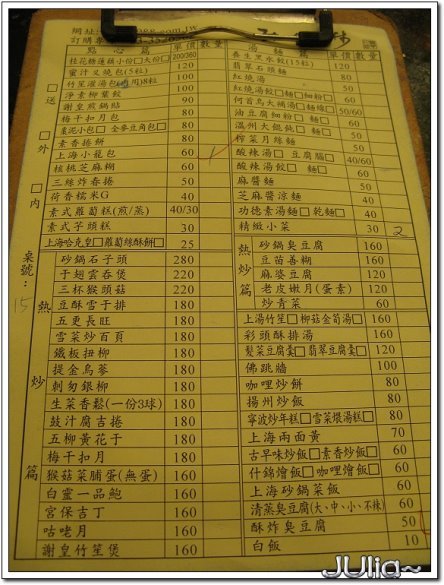 點心篇 單價 數量
桂花糖蓮藕小份□大份□ 200/360
蜜汁叉燒包(5粒) 120
竹笙灌湯包 8粒 180
淨素柳葉餃 100
謝皇煎鍋貼 90
梅干扣月包 80
棗泥小包□全麥豆角包□ 80
素香捲餅 80
上海小籠包 60
核桃芝麻糊 60
三絲炸春捲 50
荷香糯米G 40
素式蘿蔔糕(煎/蒸) 40/30
素式芋頭糕 30
上海哈克皇□蘿蔔絲酥餅□ 25
□送
□外
□內
桌號:
15
熱炒篇
砂鍋石子頭 280
于翅雲吞煲 220
三杯猴頭菇 220
豆酥雪于排 180
五更長旺 180
雪菜炒百頁 180
鐵板扭柳 180
提金烏蔘 180
刺匆銀柳 180
生菜香鬆(一份3球) 180
鼓汁腐古捲 180
五柳黃花于 180
梅干扣月 180
猴菇菜脯蛋(無蛋) 160
白靈一品鮑 160
宮保古丁 160
咕咾月 160
謝皇竹笙煲 160
湯麵篇 單價 數量
養生黑水餃(15粒) 120
翡翠石頭麵 120
紅燒湯 80
紅燒湯餃□麵□細粉□ 100
何首烏大補湯□麵線□ 50/60
油豆腐細粉□麵□ 60
溫州大餛飩□麵□ 60
榨菜月絲麵 50
酸辣湯□豆腐腦□ 40/60
酸辣湯餃□麵□ 60
麻醬麵 50
芝麻醬涼麵 40
功德素湯麵□乾麵□ 40
精緻小菜 30 2
熱炒篇
砂鍋臭豆腐 160
豆苗善糊 160
麻婆豆腐 120
老皮嫩月(蛋素) 120
炒青菜 60
上湯竹笙□柳菇金筍湯□ 160
彩頭酥排湯 160
髮菜豆腐羹□翡翠豆腐羹□ 120
佛跳牆 100
咖哩炒餅 80
揚州炒飯 80
寧波炒年糕□雪菜煨湯糕□ 80
上海兩面黃 70
古早味炒飯□素香炒飯□ 60
什錦燴飯□咖哩燴飯□ 60
上海砂鍋菜飯 60
清蒸臭豆腐(大、中、小、不辣) 60
酥炸臭豆腐 50
白飯 10
JUlia~